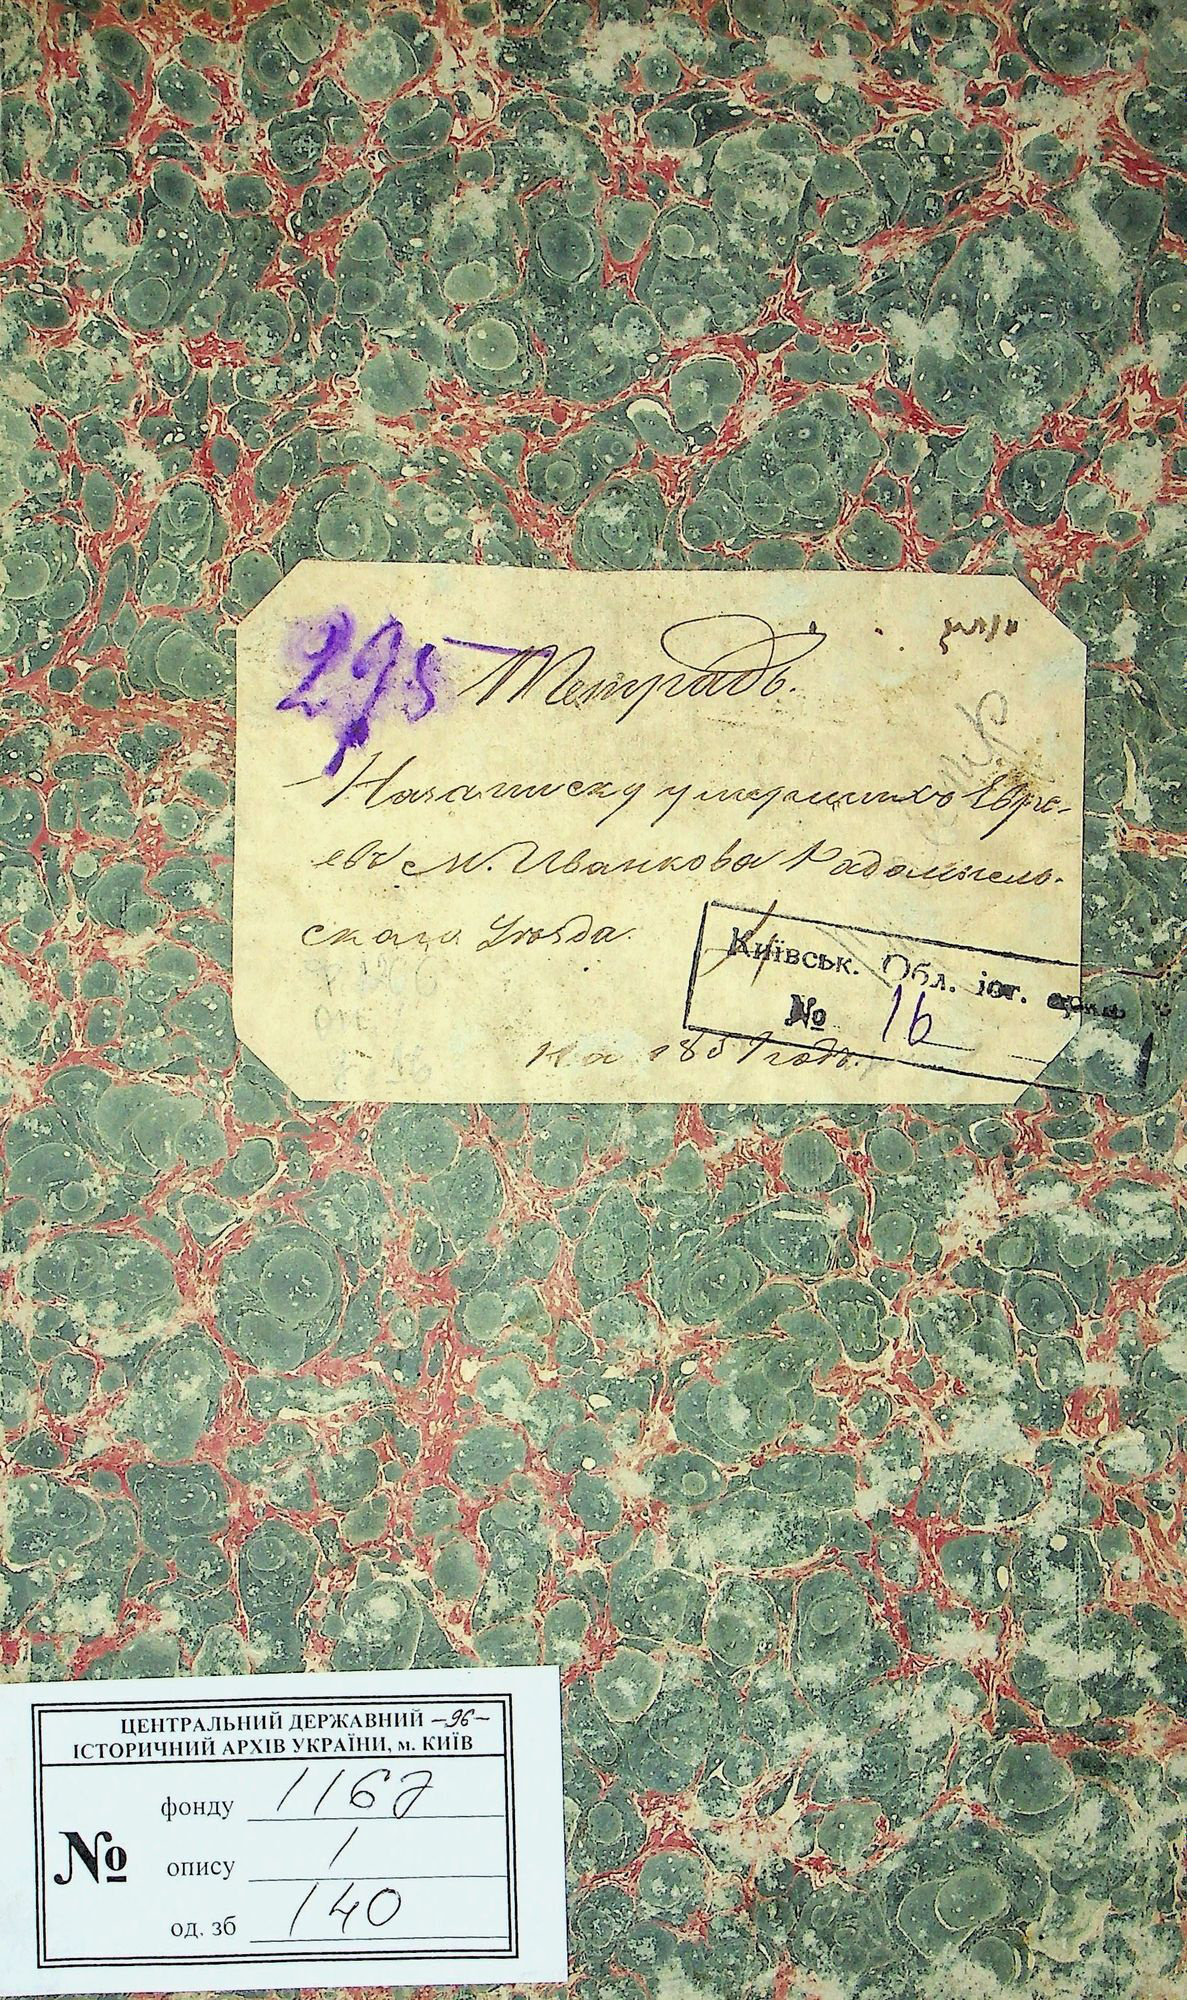 295
Тетрадь.
На записку умершихъ Евре-
евъ м. Иванкова Радомысль-
скаго Уѣзда.
Київськ. Обл. іст. архів
№ 16
На 1859 годъ.
ЦЕНТРАЛЬНИЙ ДЕРЖАВНИЙ -96-
ІСТОРИЧНИЙ АРХІВ УКРАЇНИ, м. КИЇВ
фонду 1167
№ опису 1
од. зб 140